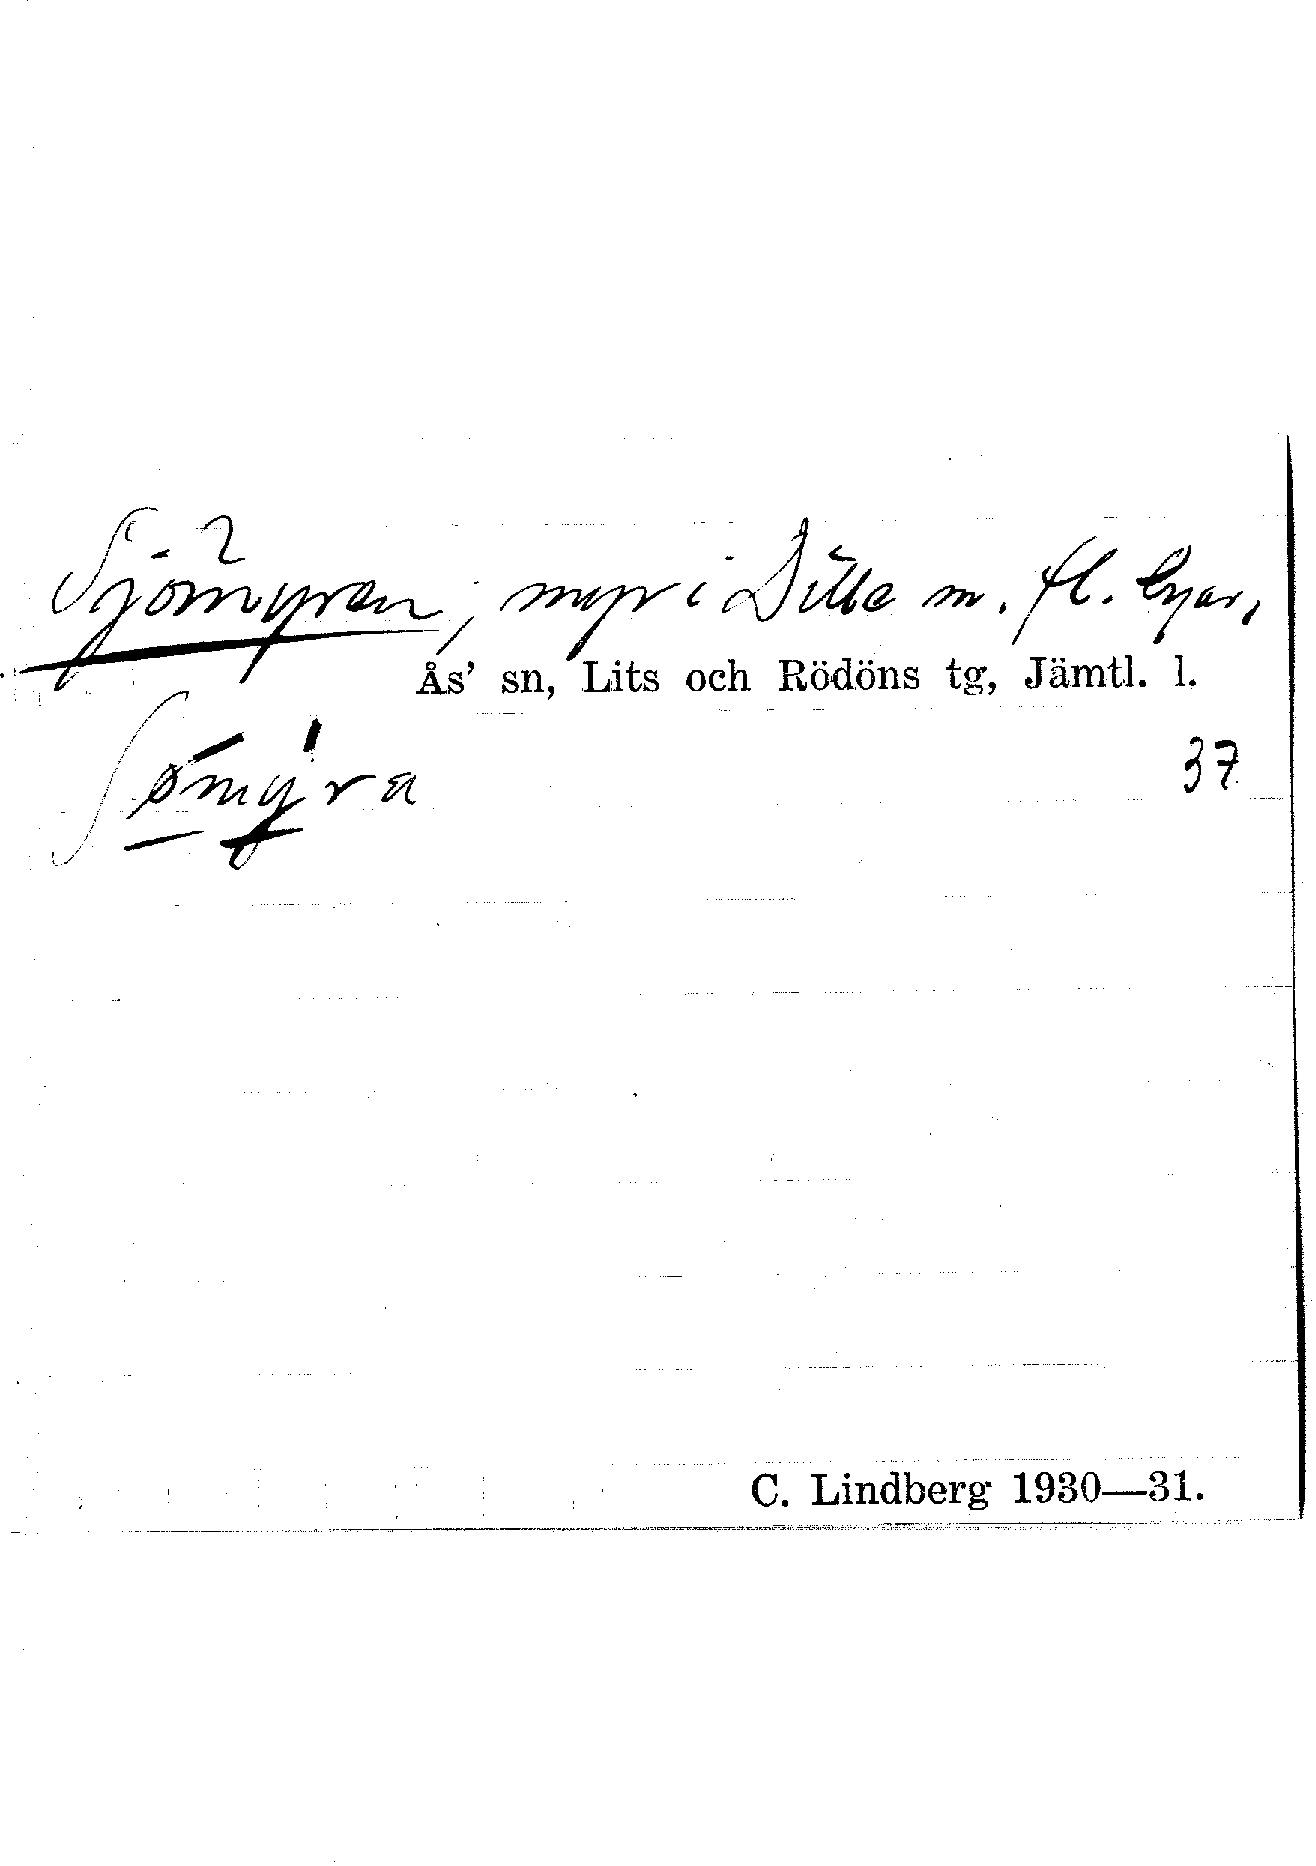 Sjömyren, myr i Dille m. fl. byar,
Ås' sn, Lits och Rödöns tg, Jämtl. l.
37
C. Lindberg 1930—31.